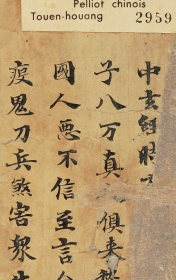 Pelliot chinois
Touen-houang 2959
中玄
子八万真 俱来
國人悪不信至言
瘦鬼刀兵煞害衆生